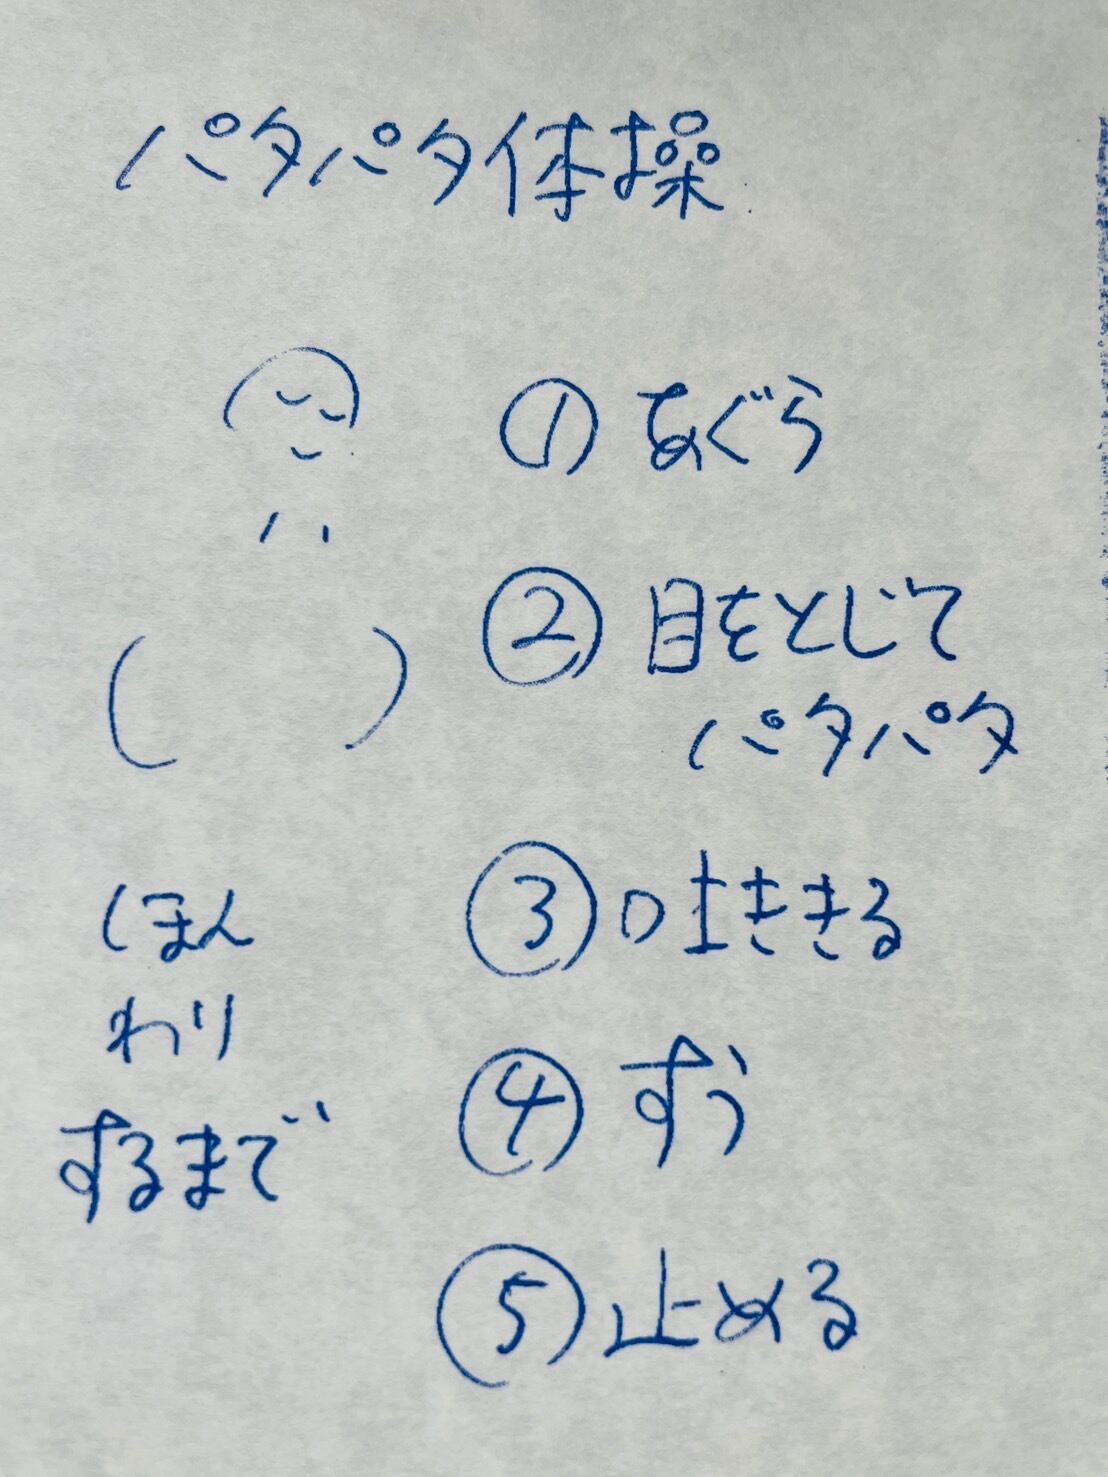 パタパタ体操
① あぐら
② 目をとじて
パタパタ
③ 吐ききる
④ すう
⑤ 止める
ほん
わり
するまで